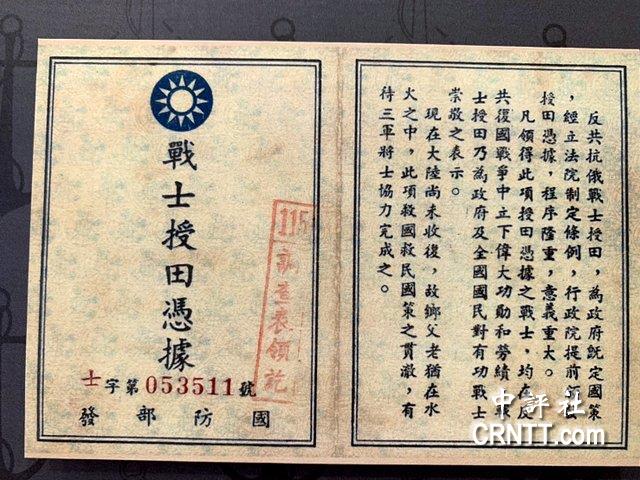 戰士授田憑據
士字第053511號
國防部發
115
調查表領訖
反共抗俄戰士授田,為政府既定國策
,經立法院制定條例,行政院提前
授田憑據,程序隆重,意義重大。
凡領得此項授田憑據之戰士,均在反
共復國戰爭中立下偉大功勳和勞績
士授田乃為政府及全國國民對有功戰士
崇敬之表示。
現在大陸尚未收復,故鄉父老猶在水
火之中,此項救國救民國策之貫澈,有
待三軍將士協力完成之。
中評社
CRNTT.com